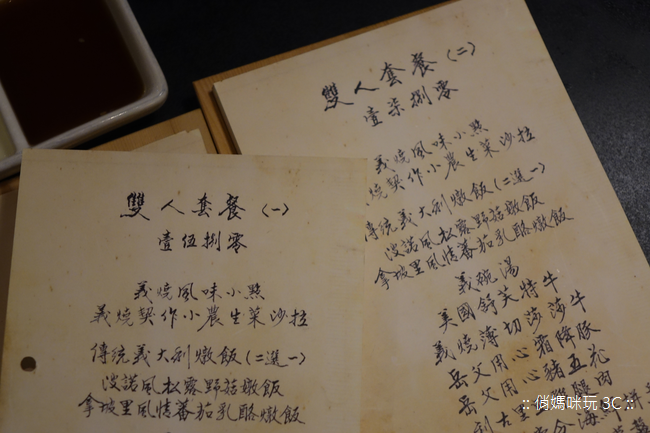 雙人套餐(一)
壹伍捌零
義燒風味小點
義燒契作小農生菜沙拉
傳統義大利燉飯(二選一)
波諾風松露野菇燉飯
拿坡里風情蕃茄乳酪燉飯
雙人套餐(二)
壹柒捌零
義燒風味小點
燒契作小農生菜沙拉
傳統義大利燉飯(二選一)
波諾風松露野菇燉飯
拿坡里風情蕃茄乳酪燉飯
義碗湯
美國舒芙特牛
義燒薄切莎莎牛
岳父用心霜降豚
岳父用心豬五花
利古里
腿肉
:: 俏媽咪玩 3C ::